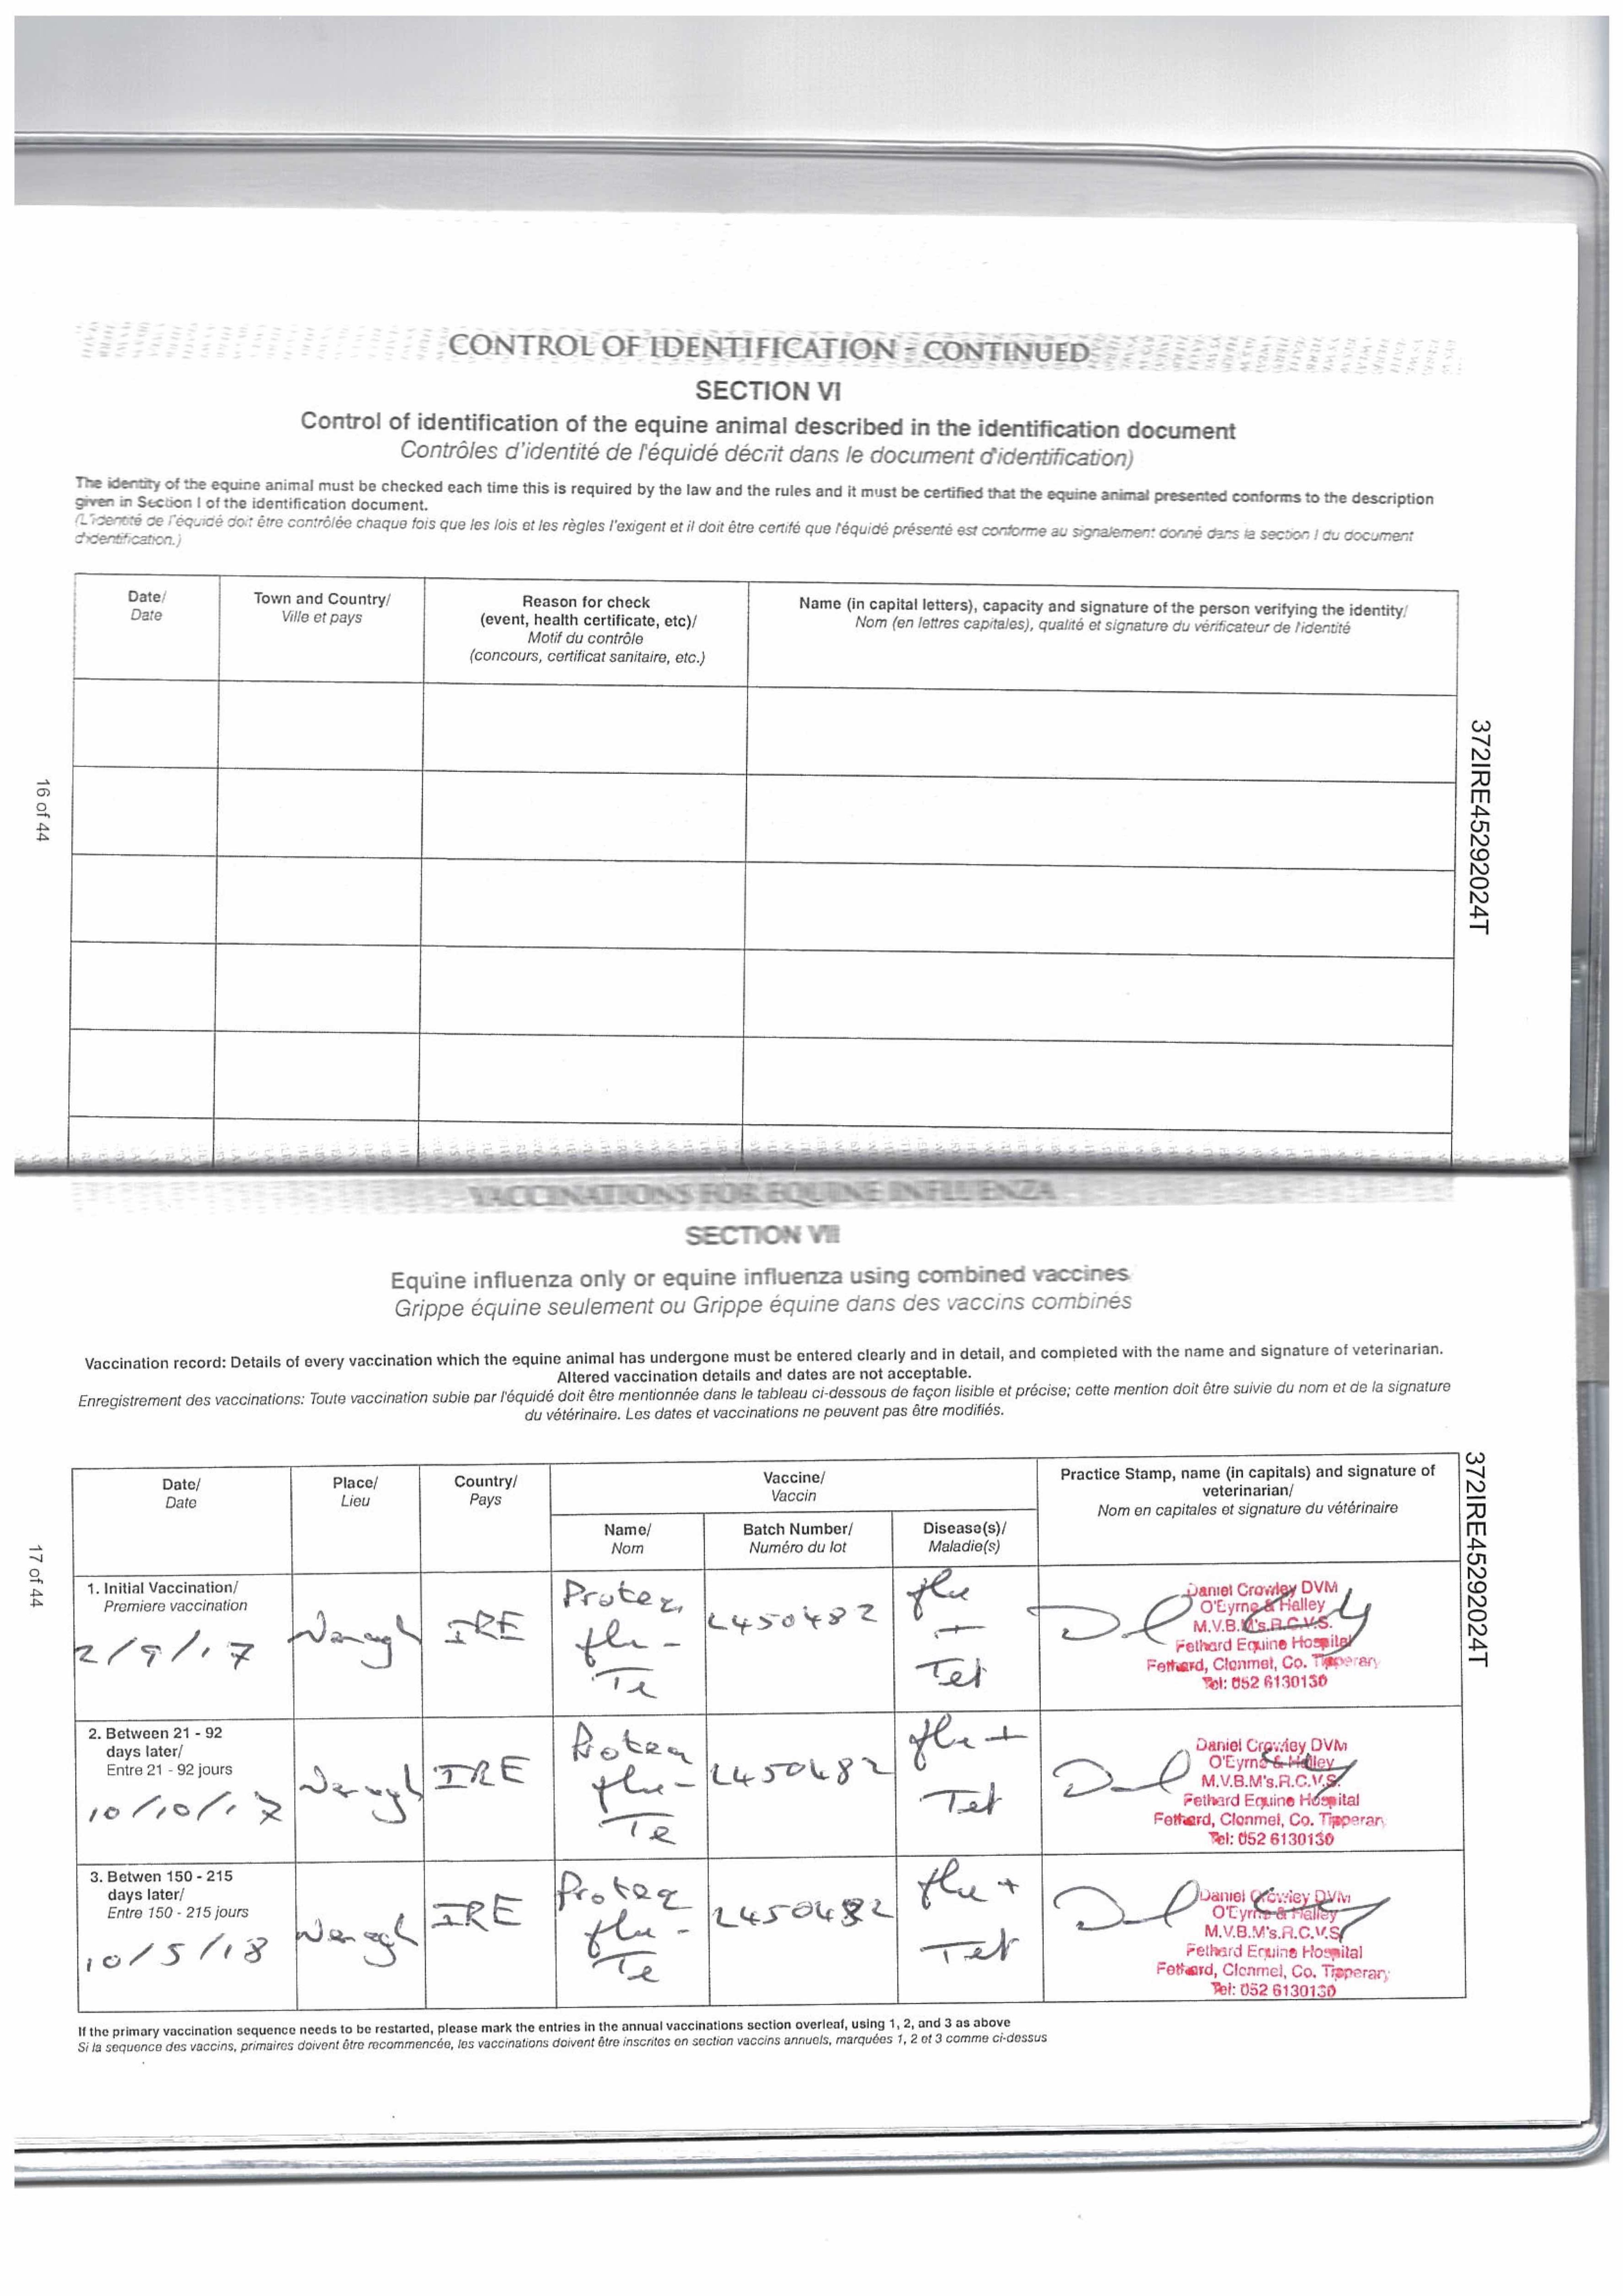 CONTROL OF IDENTIFICATION - CONTINUED
SECTION VI
Control of identification of the equine animal described in the identification document
Contrôles d'identité de l'équidé décrit dans le document d'identification)
The identity of the equine animal must be checked each time this is required by the law and the rules and it must be certified that the equine animal presented conforms to the description
given in Section I of the identification document.
(L'identité de l'équidé doit être contrôlée chaque fois que les lois et les règles l'exigent et il doit être certifé que l'équidé présenté est conforme au signalement donné dans la section I du document
d'identification.)
Date/
Date
Town and Country/
Ville et pays
Reason for check
(event, health certificate, etc)/
Motif du contrôle
(concours, certificat sanitaire, etc.)
Name (in capital letters), capacity and signature of the person verifying the identity/
Nom (en lettres capitales), qualité et signature du vérificateur de l'identité
16 of 44
372IRE45292024T
VACCINATIONS FOR EQUINE INFLUENZA
SECTION VII
Equine influenza only or equine influenza using combined vaccines
Grippe équine seulement ou Grippe équine dans des vaccins combinés
Vaccination record: Details of every vaccination which the equine animal has undergone must be entered clearly and in detail, and completed with the name and signature of veterinarian.
Altered vaccination details and dates are not acceptable.
Enregistrement des vaccinations: Toute vaccination subie par l'équidé doit être mentionnée dans le tableau ci-dessous de façon lisible et précise; cette mention doit être suivie du nom et de la signature
du vétérinaire. Les dates et vaccinations ne peuvent pas être modifiés.
Date/
Date
Place/
Lieu
Country/
Pays
Vaccine/
Vaccin
Name/
Nom
Batch Number/
Numéro du lot
Disease(s)/
Maladie(s)
Practice Stamp, name (in capitals) and signature of
veterinarian/
Nom en capitales et signature du vétérinaire
1. Initial Vaccination/
Premiere vaccination
2/9/17
Nenagh
IRE
Proteq
flu -
Te
L450482
flu
+
Tet
Daniel Crowley DVM
O'Eyrne & Halley
M.V.B.M's.R.C.V.S.
Fethard Equine Hospital
Fethard, Clonmel, Co. Tipperary
Tel: 052 6130130
2. Between 21 - 92
days later/
Entre 21 - 92 jours
10/10/17
Nenagh
IRE
Proteq
flu -
Te
L450482
flu +
Tet
Daniel Crowley DVM
O'Eyrne & Halley
M.V.B.M's.R.C.V.S.
Fethard Equine Hospital
Fethard, Clonmel, Co. Tipperary
Tel: 052 6130130
3. Betwen 150 - 215
days later/
Entre 150 - 215 jours
10/5/18
Nenagh
IRE
Proteq
flu -
Te
L450482
flu +
Tet
Daniel Crowley DVM
O'Eyrne & Halley
M.V.B.M's.R.C.V.S
Fethard Equine Hospital
Fethard, Clonmel, Co. Tipperary
Tel: 052 6130130
If the primary vaccination sequence needs to be restarted, please mark the entries in the annual vaccinations section overleaf, using 1, 2, and 3 as above
Si la sequence des vaccins, primaires doivent être recommencée, les vaccinations doivent être inscrites en section vaccins annuels, marquées 1, 2 et 3 comme ci-dessus
17 of 44
372IRE45292024T